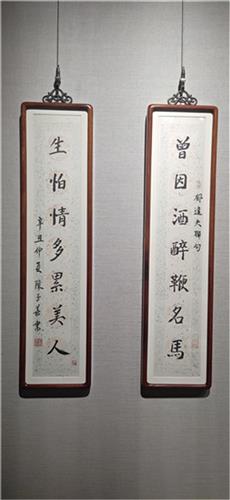 曾因酒醉鞭名馬
郁達夫聯句
生怕情多累美人
辛丑仲夏 陳子書